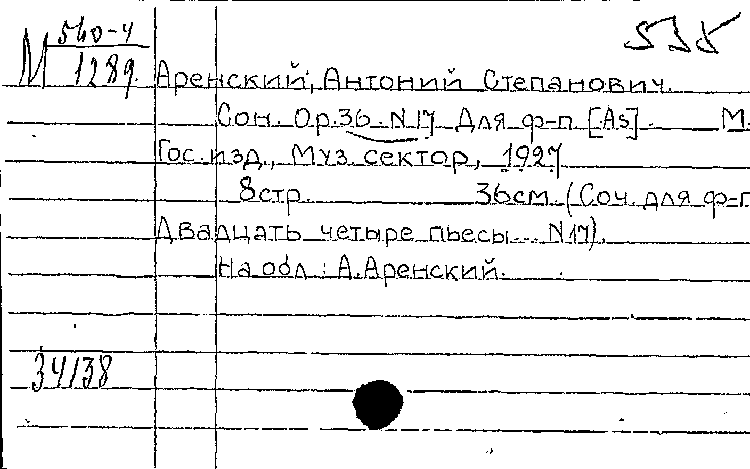 М 540-4
1289
Аренский, Антоний Степанович.
Сон. Ор.36. N 17 Для ф-п. [As]. М.
Гос. изд., Муз. сектор, 1927
8стр. 36см. (Соч. для ф-п
Двадцать четыре пьесы... N 17).
На обл.: А.Аренский.
34/38